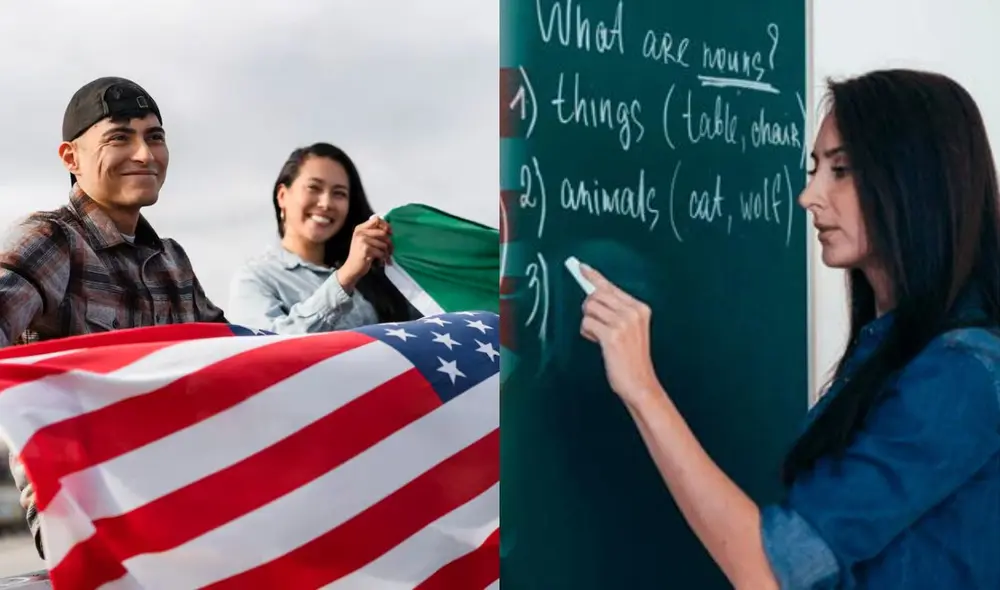 What are nouns?
1) things (table, chair)
2) animals (cat, wolf)
3)